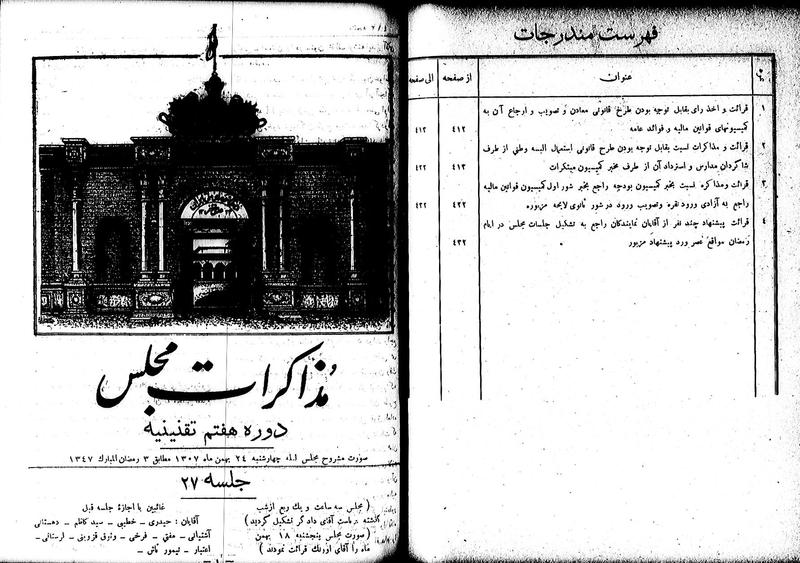 فهرست مندرجات
عنوان
از صفحه
الی صفحه
۱
قرائت و اخذ رأی بقابل توجه بودن طرح قانونی معادن و تصویب و ارجاع آن به
کمیسیونهای قوانین مالیه و فوائد عامه
۴۱۲
۴۱۳
۲
قرائت و مذاکرات نسبت بقابل توجه بودن طرح قانونی استعمال البسه وطنی از طرف
شاگردان مدارس و استرداد آن از طرف مخبر کمیسیون مبتکرات
۴۱۳
۴۲۲
۳
قرائت ومذاکره نسبت بخبر کمیسیون بودجه راجع بخبر شور اول کمیسیون قوانین مالیه
راجع به آزادی ورود نقره وتصویب ورود در شور ثانوی لایحه مزبوره
۴۲۲
۴۳۲
۴
قرائت پیشنهاد چند نفر از آقایان نمایندگان راجع به تشکیل جلسات مجلس در ایام
رمضان مواقع عصر ورد پیشنهاد مزبور
۴۳۲
مذاکرات مجلس
دوره هفتم تقنینیه
صورت مشروح مجلس لیله چهارشنبه ۲۴ بهمن ماه ۱۳۰۷ مطابق ۳ رمضان المبارك ۱۳۴۷
جلسه ۲۷
( مجلس سه ساعت و یك ربع ازشب
گذشته بریاست آقای دادگر تشکیل گردید )
( صورت مجلس پنجشنبه ۱۸ بهمن
ماه را آقای اورنك قرائت نمودند )
غائبین با اجازه جلسه قبل
آقایان : حیدری ـ خطیبی ـ سید کاظم ـ دهستانی
آشتیانی ـ مفتی ـ فرخی ـ وثوق قزوینی ـ لرستانی ـ
اعتبار ـ تیمور تاش ـ
ـ ۱ ـ